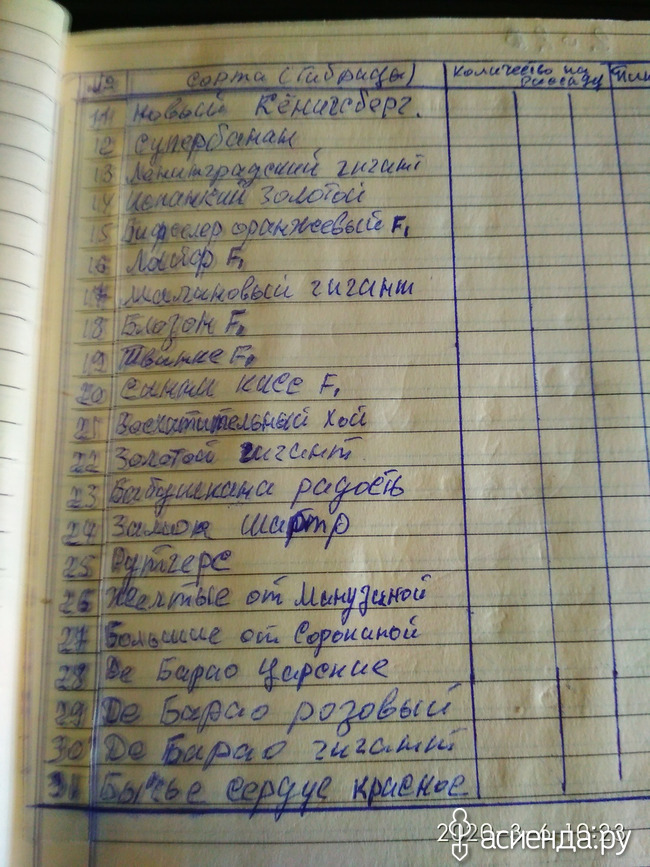 № сорта (Гибриды) количество на рассаду
11 Новый Кёнигсберг.
12 Супербанан
13 Ленинградский гигант
14 Испанкий золотой
15 оранжевый F1
16 F1
17 Малиновый гигант
18 F1
19 F1
20 Санти кисс F1
21 Восхитительный хой
22 Золотой гигант
23 радость
24 Замок шартр
25 Рутгерс
26 Желтые от Минузиной
27 Большие от Сорокиной
28 Де Барао Царские
29 Де Барао розовый
30 Де Барао гигант
31 Бычье сердце красное
2020-3-6 10:23
асиенда.ру